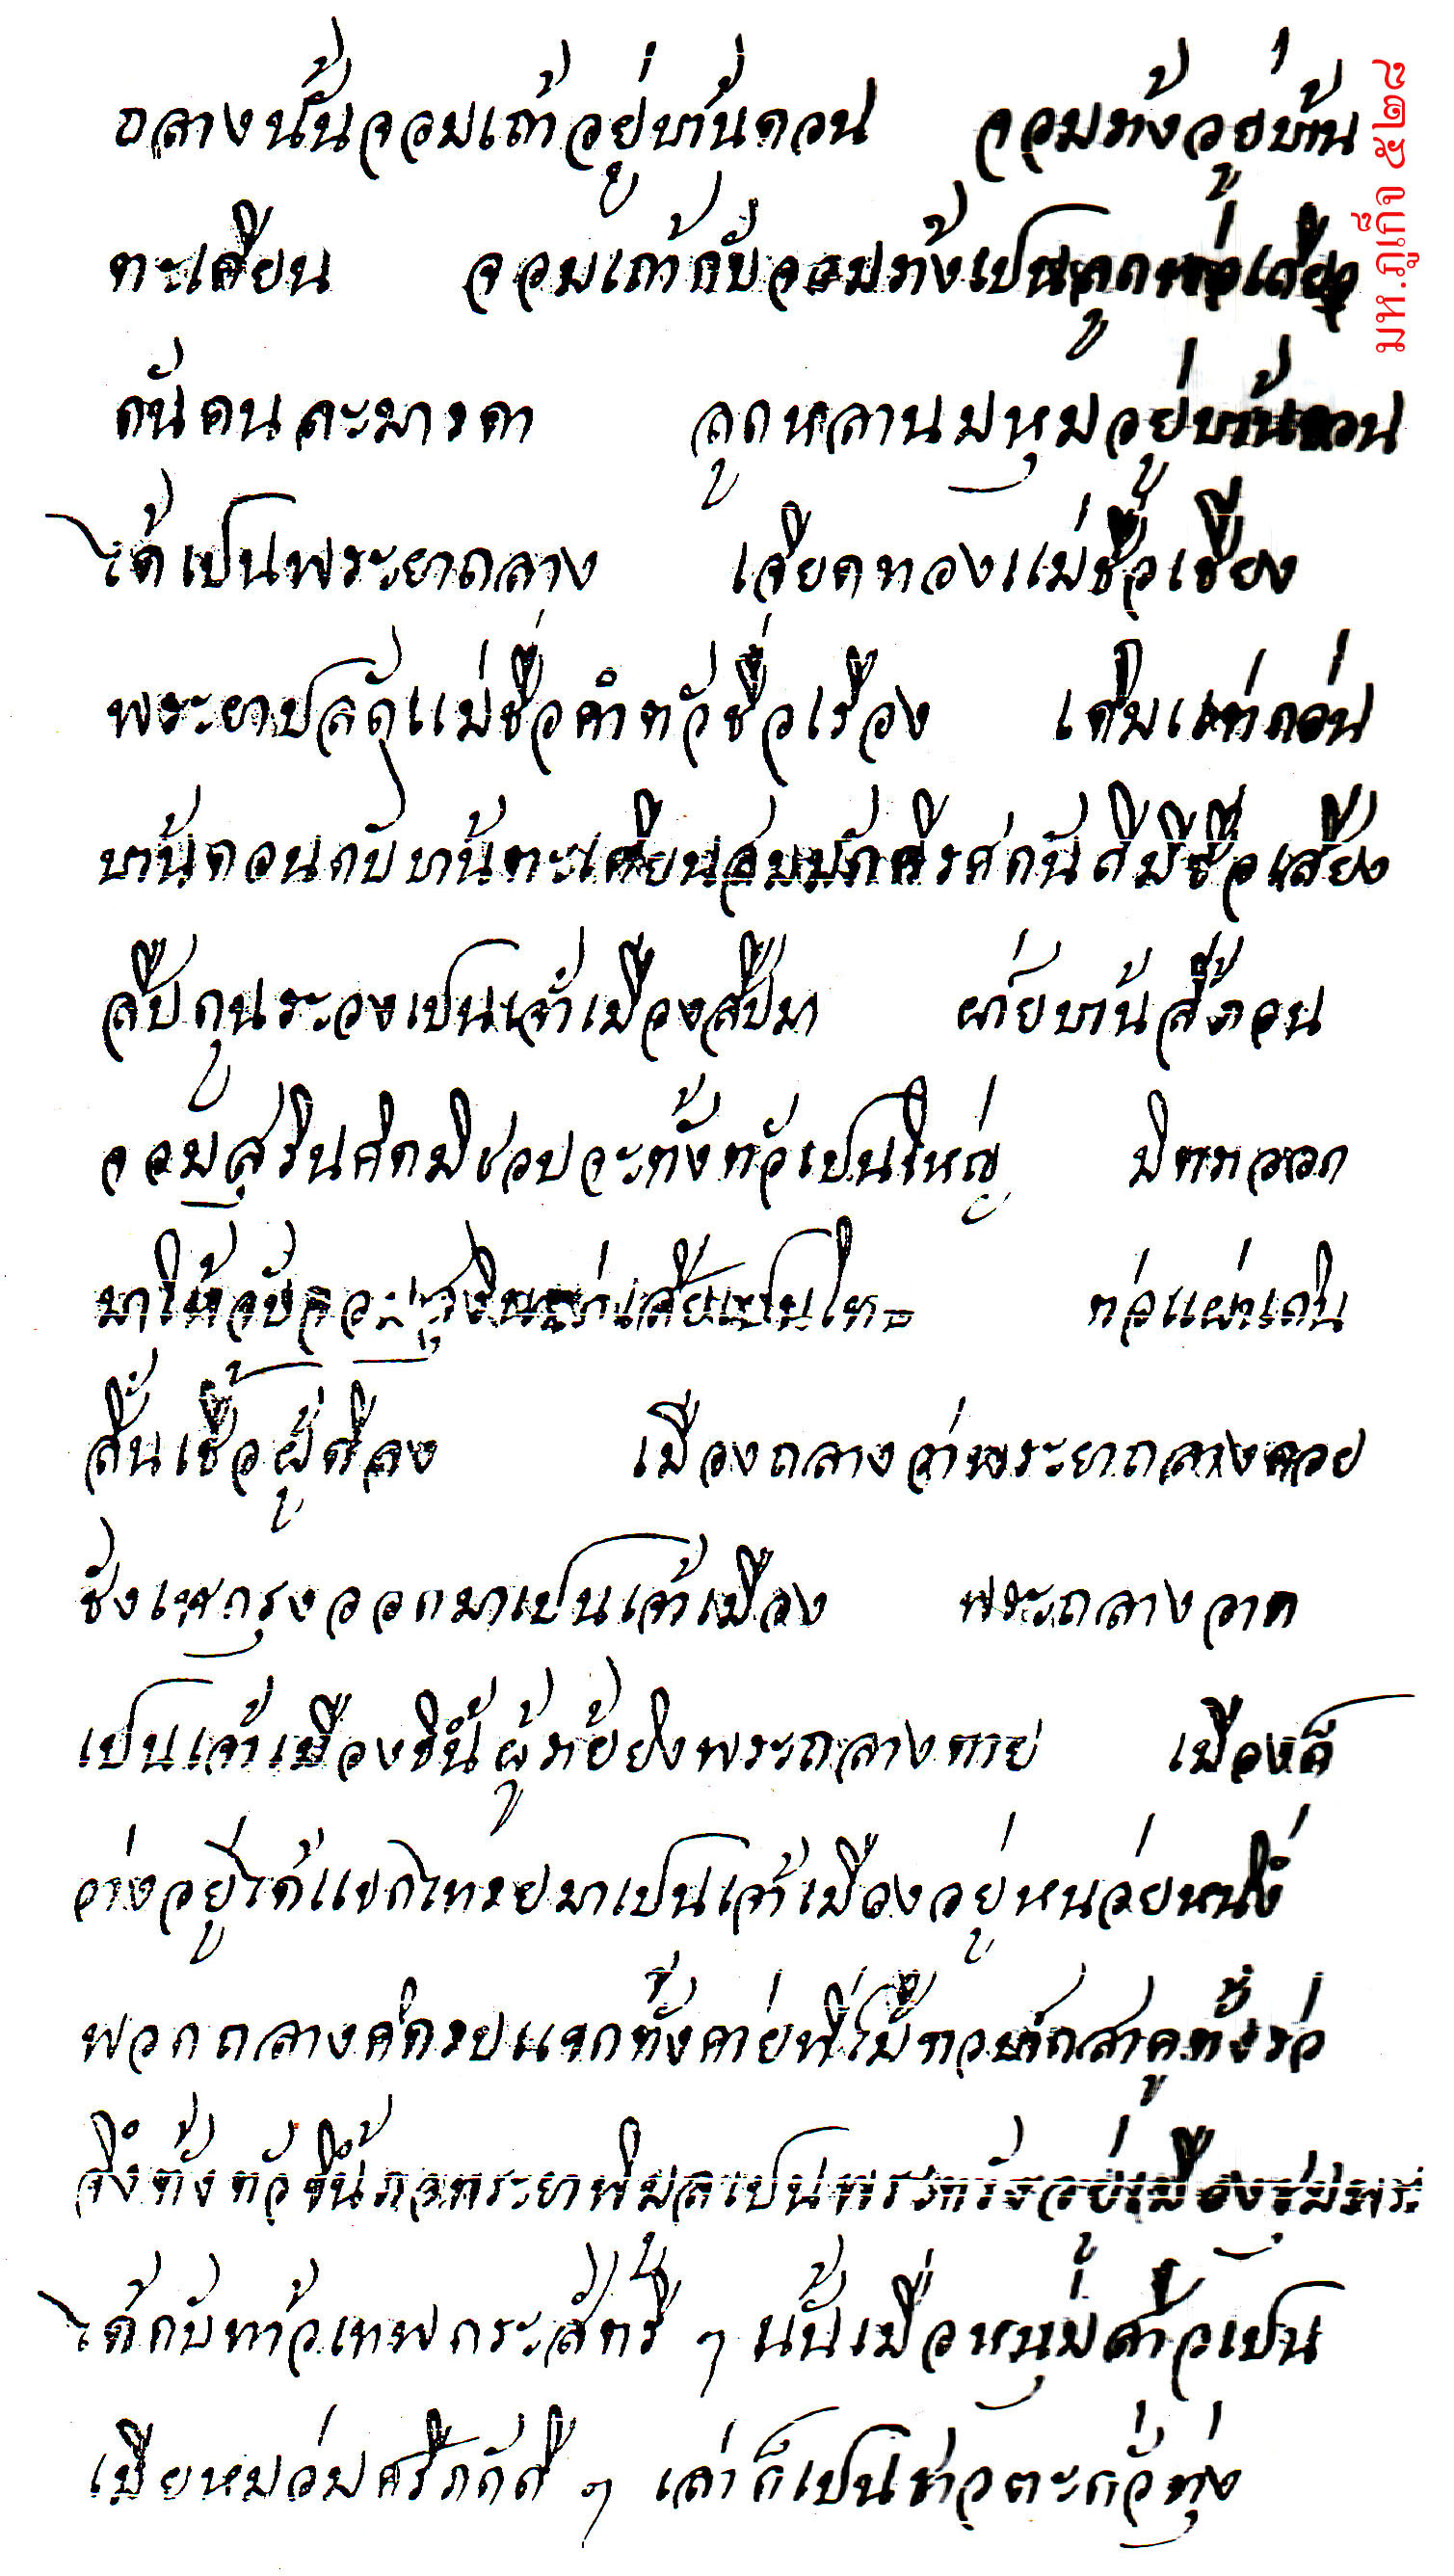 ถลางนั้นจอมเถ้าอยู่บ้านดอน จอมร้างอยู่บ้าน
ตะเคียน จอมเถ้ากับจอมร้างเป็นลูกพ่อเดียว
กันคนละมารดา ลูกหลานมหุมอยู่บ้านดอน
ได้เป็นพระยาถลาง เจียดทองแม่ชื่อเชียง
พระยาปลัดแม่ชื่อคำทัวชื่อเรือง เดิมแต่ก่อน
บ้านดอนกับบ้านตะเคียน กันสีมีชื่อเสียง
สืบกูนระวงเป็นเจ้าเมืองสืบมา ฝ่ายบ้านลี้ภอน
จอมสุรินคิดมิชอบจะตั้งตัวเป็นใหญ่ มีตราออก
มาให้จับ เสียเป็นโทด ต่อแผ่นเดิน
สิ้นเชื้อผู้ดีลง เมืองถลางว่างพระยาถลางคอย
ชังเซกรุงออกมาเป็นเจ้าเมือง พระถลางอาด
เป็นเจ้าเมืองขึ้นผู้ร้ายยิงพระถลางตาย เมืองก็
ว่างอยู่ได้แขกไทรยมาเป็นเจ้าเมืองอยู่หน่อยหนึ่ง
พวกถลางคิดรบแขกทั้งค่ายที่ไม้ขาวท่าสาคูทั้งร่อ
จึงตั้งตัวขึ้น พระยาพิมลเป็นพระกระอยู่เมืองชุมพร
ได้กับท้าวเทพกระสัตรี ๆ นั้นเมื่อหนุ่มสาวเป็น
เมียหม่อมศรีภักดี ๆ เล่าก็เป็นชาวตะกั่วทุ่ง
มห.ภูเก็จ ๕๒๘